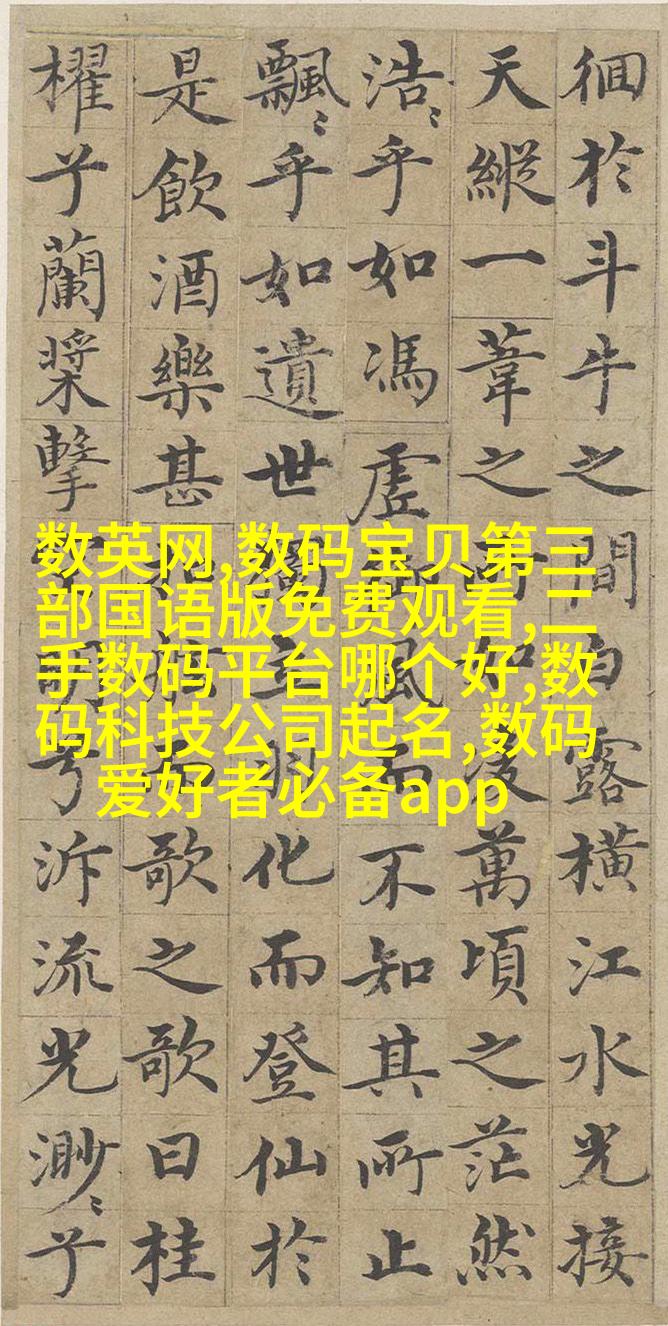 徊於斗牛之間白露橫江水光接
天縱一葦之所如凌萬頃之茫然
浩〻乎如馮虛御風而不知其所止
飄〻乎如遺世獨立羽化而登仙於
是飲酒樂甚扣舷而歌之歌曰桂
櫂兮蘭槳擊空明兮泝流光渺〻兮
数英网,数码宝贝第三
部国语版免费观看,二
手数码平台哪个好,数
码科技公司起名,数码
爱好者必备app